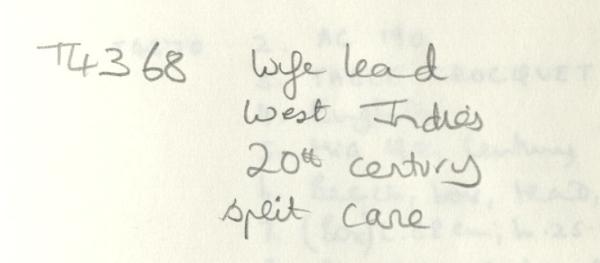 T14368 Wife lead
West Indies
20th century
split cane